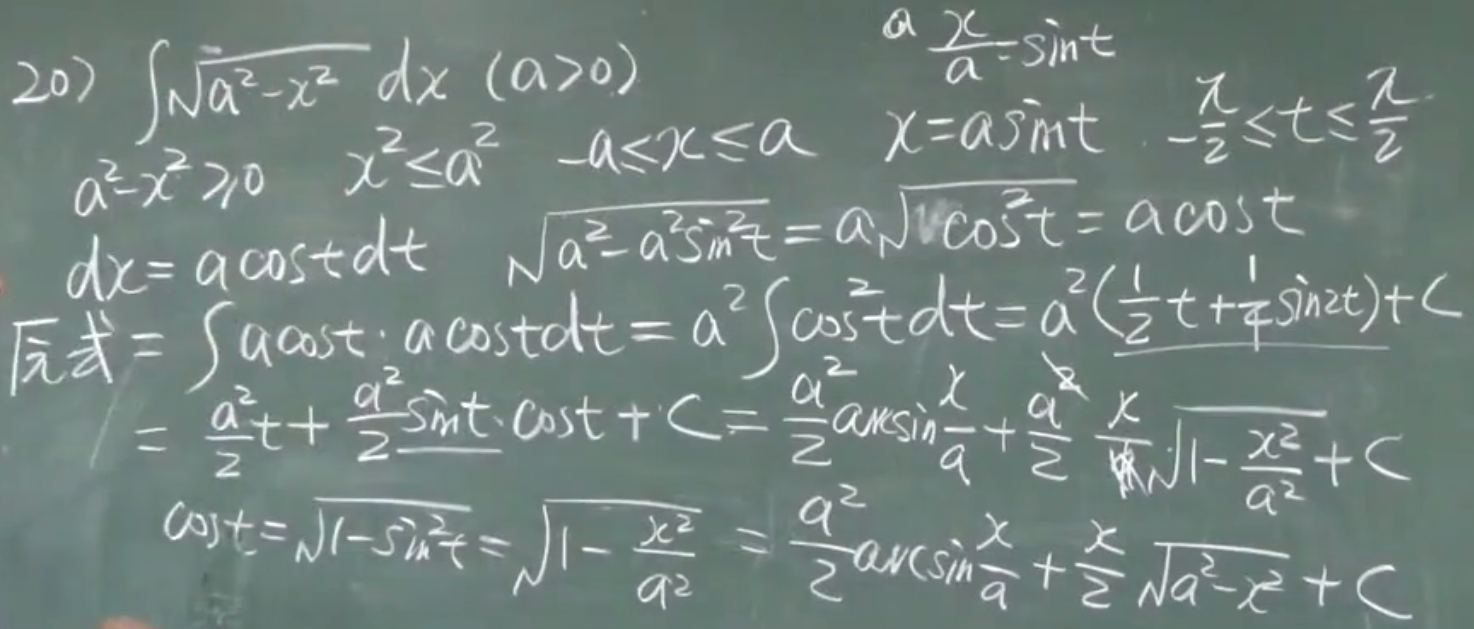 20) ∫√(a²-x²) dx (a>0)
a x/a=sint
a²-x²≥0 x²≤a² -a≤x≤a x=asint -π/2≤t≤π/2
dx=acostdt √(a²-a²sin²t)=a√(cos²t)=acost
原式=∫acost·acostdt=a²∫cos²tdt=a²(1/2 t+1/4 sin2t)+C
=a²/2 t+a²/2 sint·cost+C=a²/2 arcsin x/a+a²/2 x √(1-x²/a²)+C
cost=√(1-sin²t)=√(1-x²/a²) =a²/2 arcsin x/a+x/2 √(a²-x²)+C